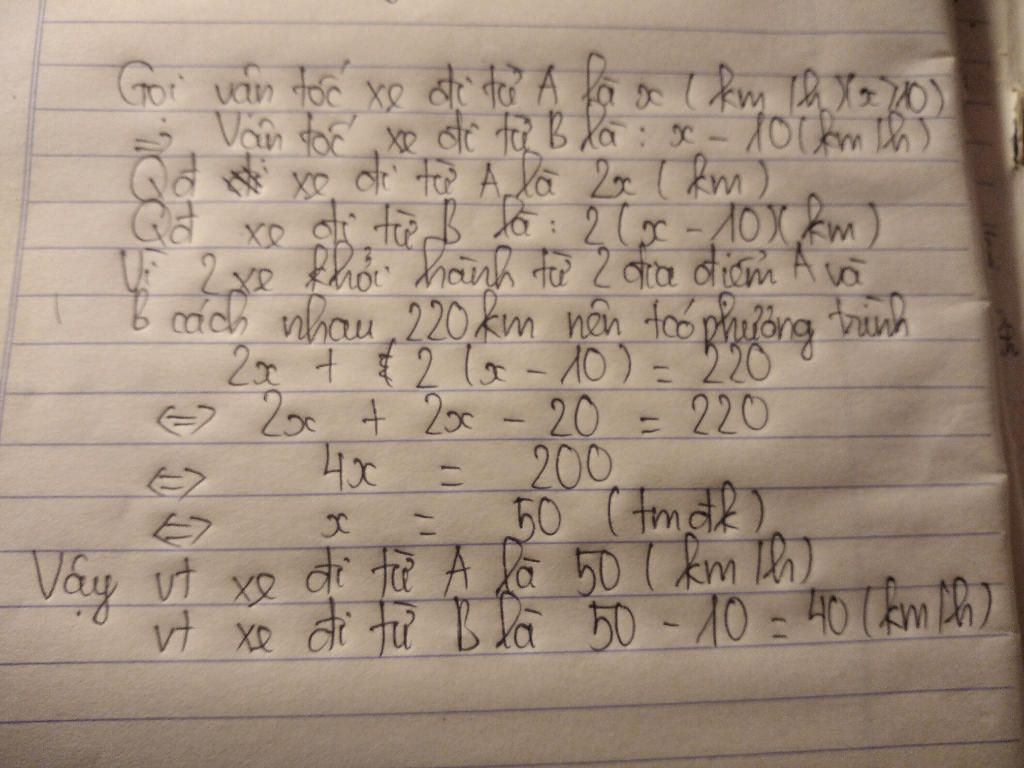 Gọi vân tốc xe đi từ A là x (km/h)(x>10)
=> Vân tốc xe đi từ B là: x - 10(km/h)
Qđ xe đi từ A là 2x (km)
Qđ xe đi từ B là: 2(x - 10)(km)
Vì 2 xe khởi hành từ 2 địa điểm A và
B cách nhau 220km nên tcó phương trình
2x + 2 (x - 10) = 220
<=> 2x + 2x - 20 = 220
<=> 4x = 200
<=> x = 50 (tmđk)
Vậy vt xe đi từ A là 50 (km/h)
vt xe đi từ B là 50 - 10 = 40 (km/h)